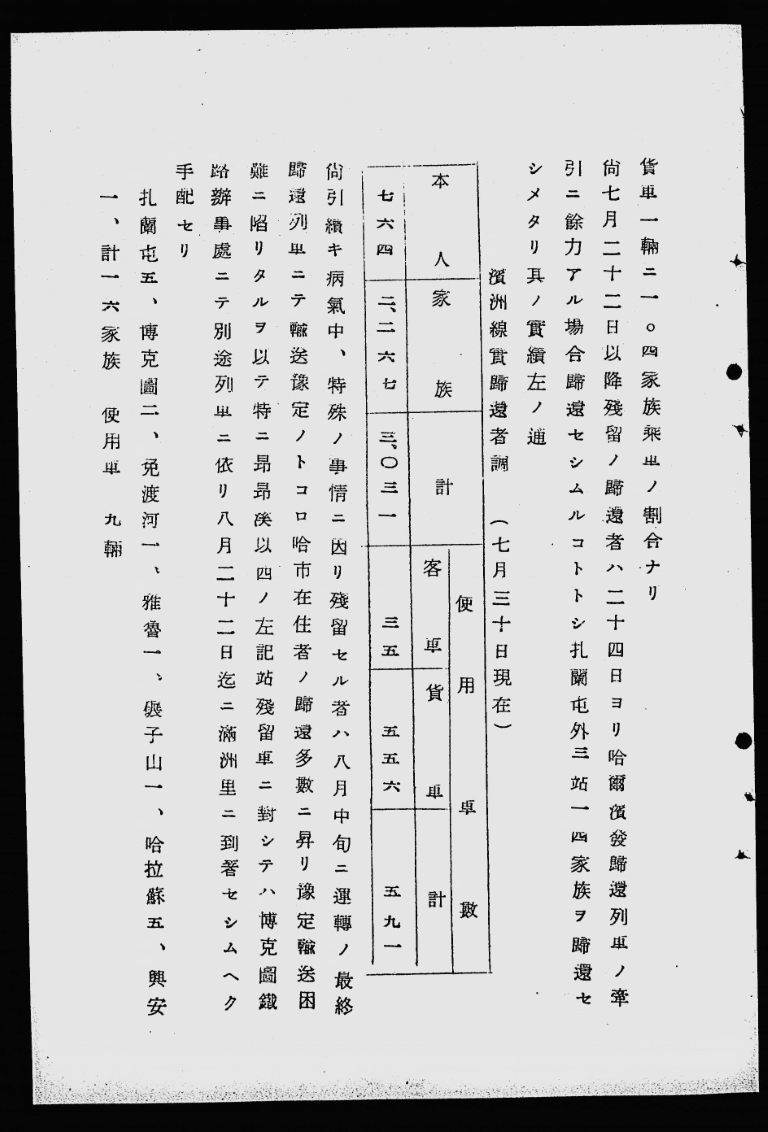 貨車一輛ニ一〇四家族乘車ノ割合ナリ
尙七月二十二日以降殘留ノ歸還者ハ二十四日ヨリ哈爾濱發歸還列車ノ牽
引ニ餘力アル場合歸還セシムルコトトシ扎蘭屯外三站一四家族ヲ歸還セ
シメタリ其ノ實績左ノ通
濱洲線實歸還者調 (七月三十日現在)
使用車數
本人 家族 計 客車 貨車 計
七六四 二、二六七 三、〇三一 三五 五五六 五九一
尙引續キ病氣中、特殊ノ事情ニ因リ殘留セル者ハ八月中旬ニ運轉ノ最終
歸還列車ニテ輸送豫定ノトコロ哈市在住者ノ歸還多數ニ昇リ豫定輸送困
難ニ陷リタルヲ以テ特ニ昂昂溪以西ノ左記站殘留車ニ對シテハ博克圖鐵
路辦事處ニテ別途列車ニ依リ八月二十二日迄ニ滿洲里ニ到著セシムヘク
手配セリ
扎蘭屯五、博克圖二、免渡河一、雅魯一、碾子山一、哈拉蘇五、興安
一、計一六家族 使用車 九輛